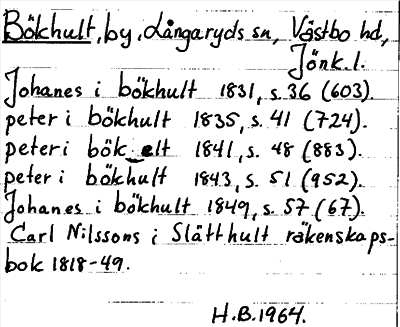 Bökhult, by, Långaryds sn, Västbo hd,
Jönk.l.
Johanes i bökhult 1831, s. 36 (603).
peter i bökhult 1835, s. 41 (724).
peter i bök elt 1841, s. 48 (883).
peter i bökhult 1843, s. 51 (952).
Johanes i bökhult 1849, s. 57 (67).
Carl Nilssons i Slätthult räkenskaps-
bok 1818-49.
H.B.1964.